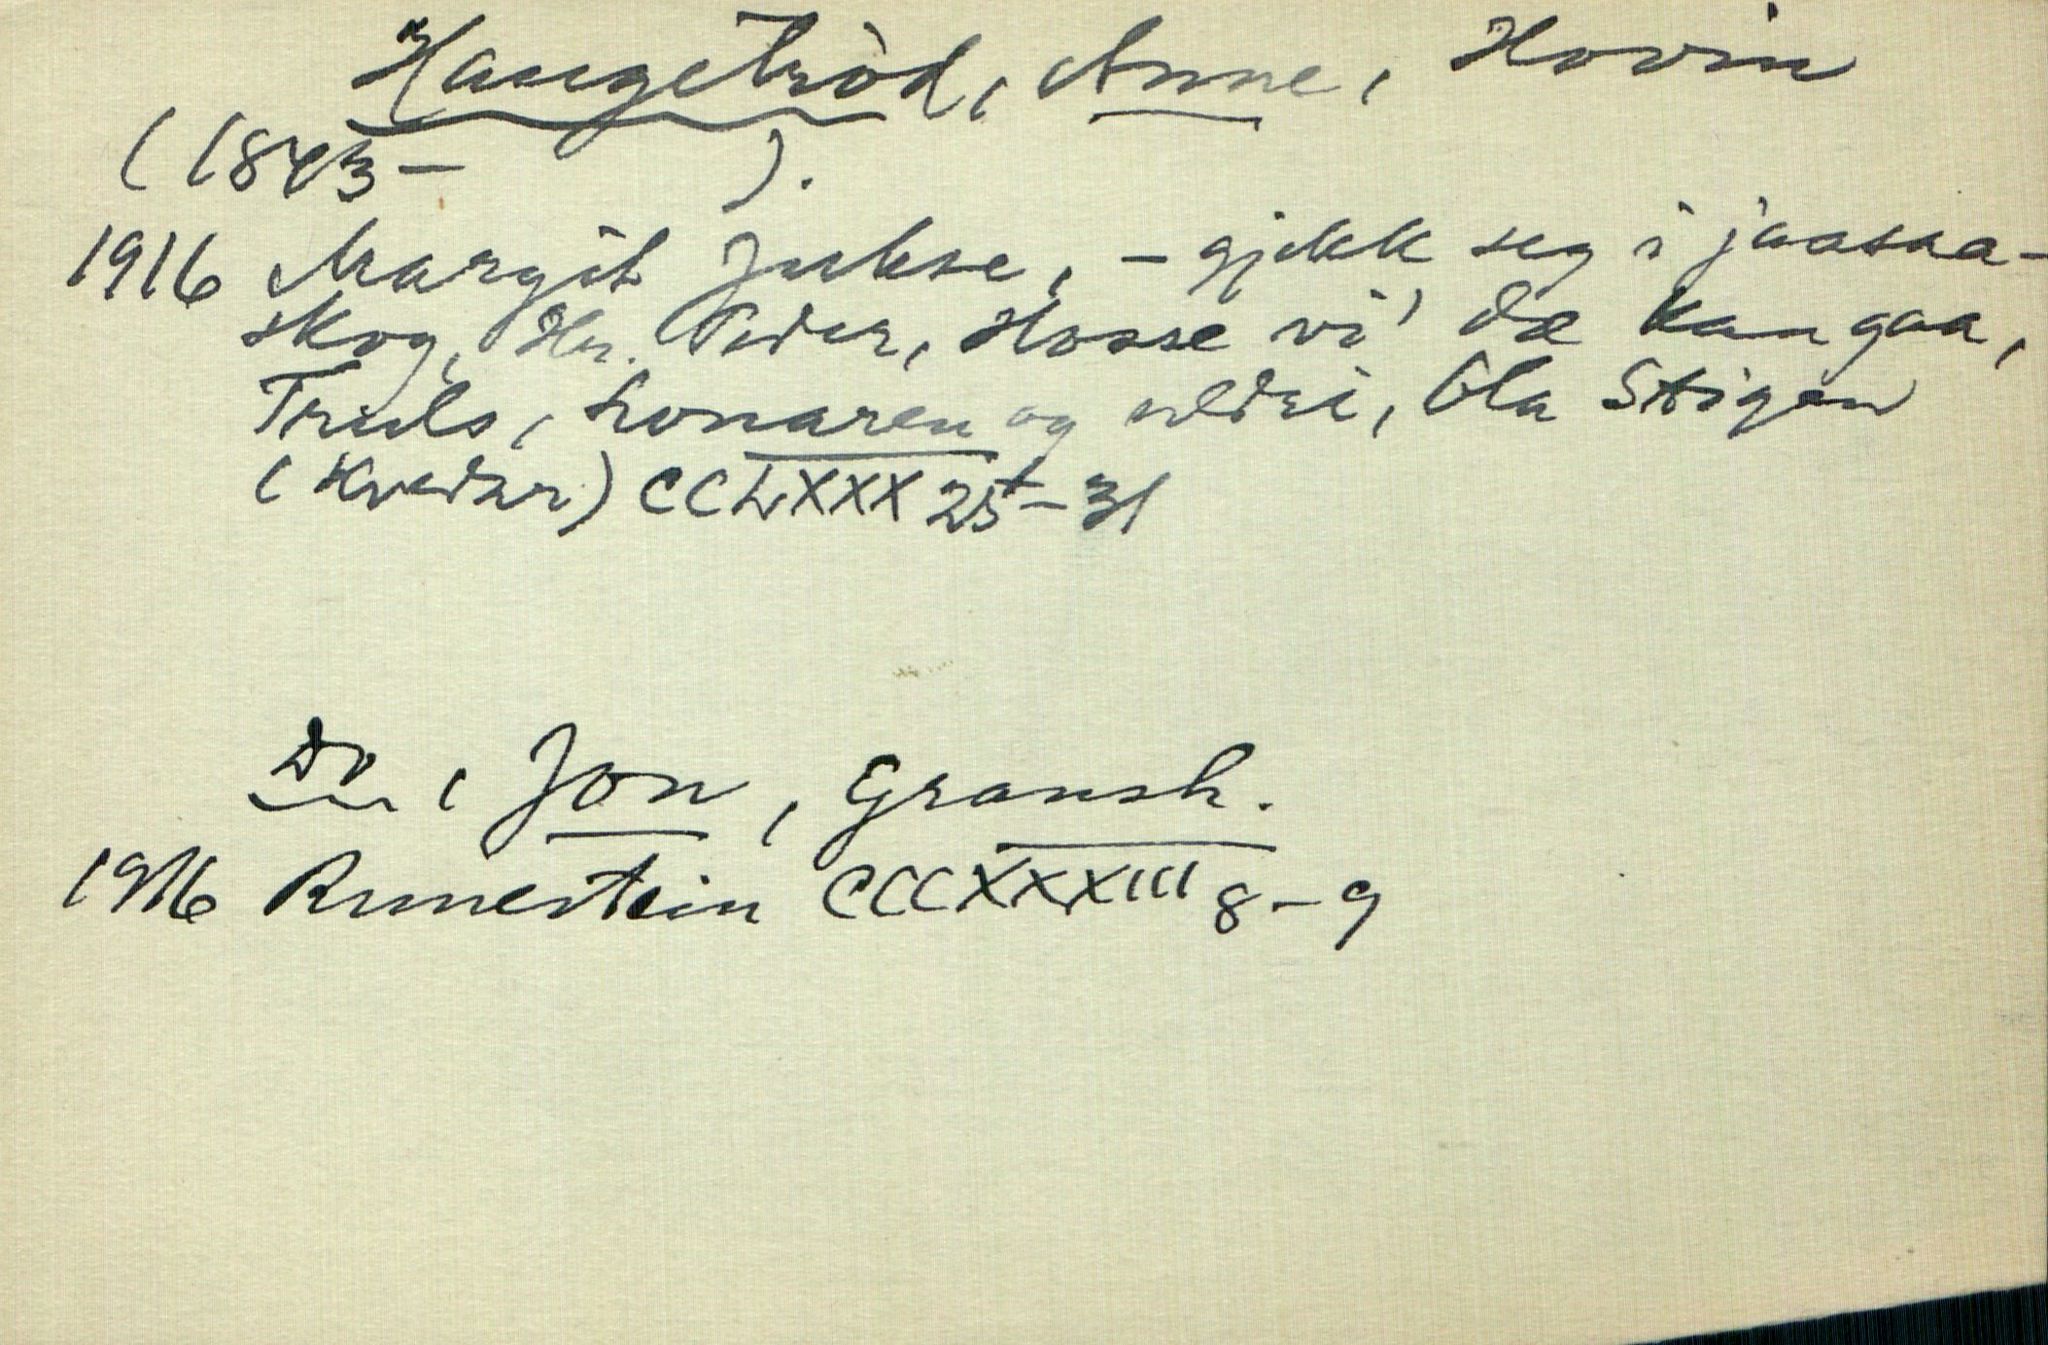 Haugetröd, Anne, Hovin
(1843-      ).
1916 Margit Jukse, - gjekk seg i jaasaa-
skog, Hr. Peder, Hosse vi' dæ kan gaa,
Truls, Lonaren og eldri, Ola Stigen
(Kvedar) CCLXXX 25-31
Do, Jon, Gransh.
1916 Runestein CCCXXXIII 8-9